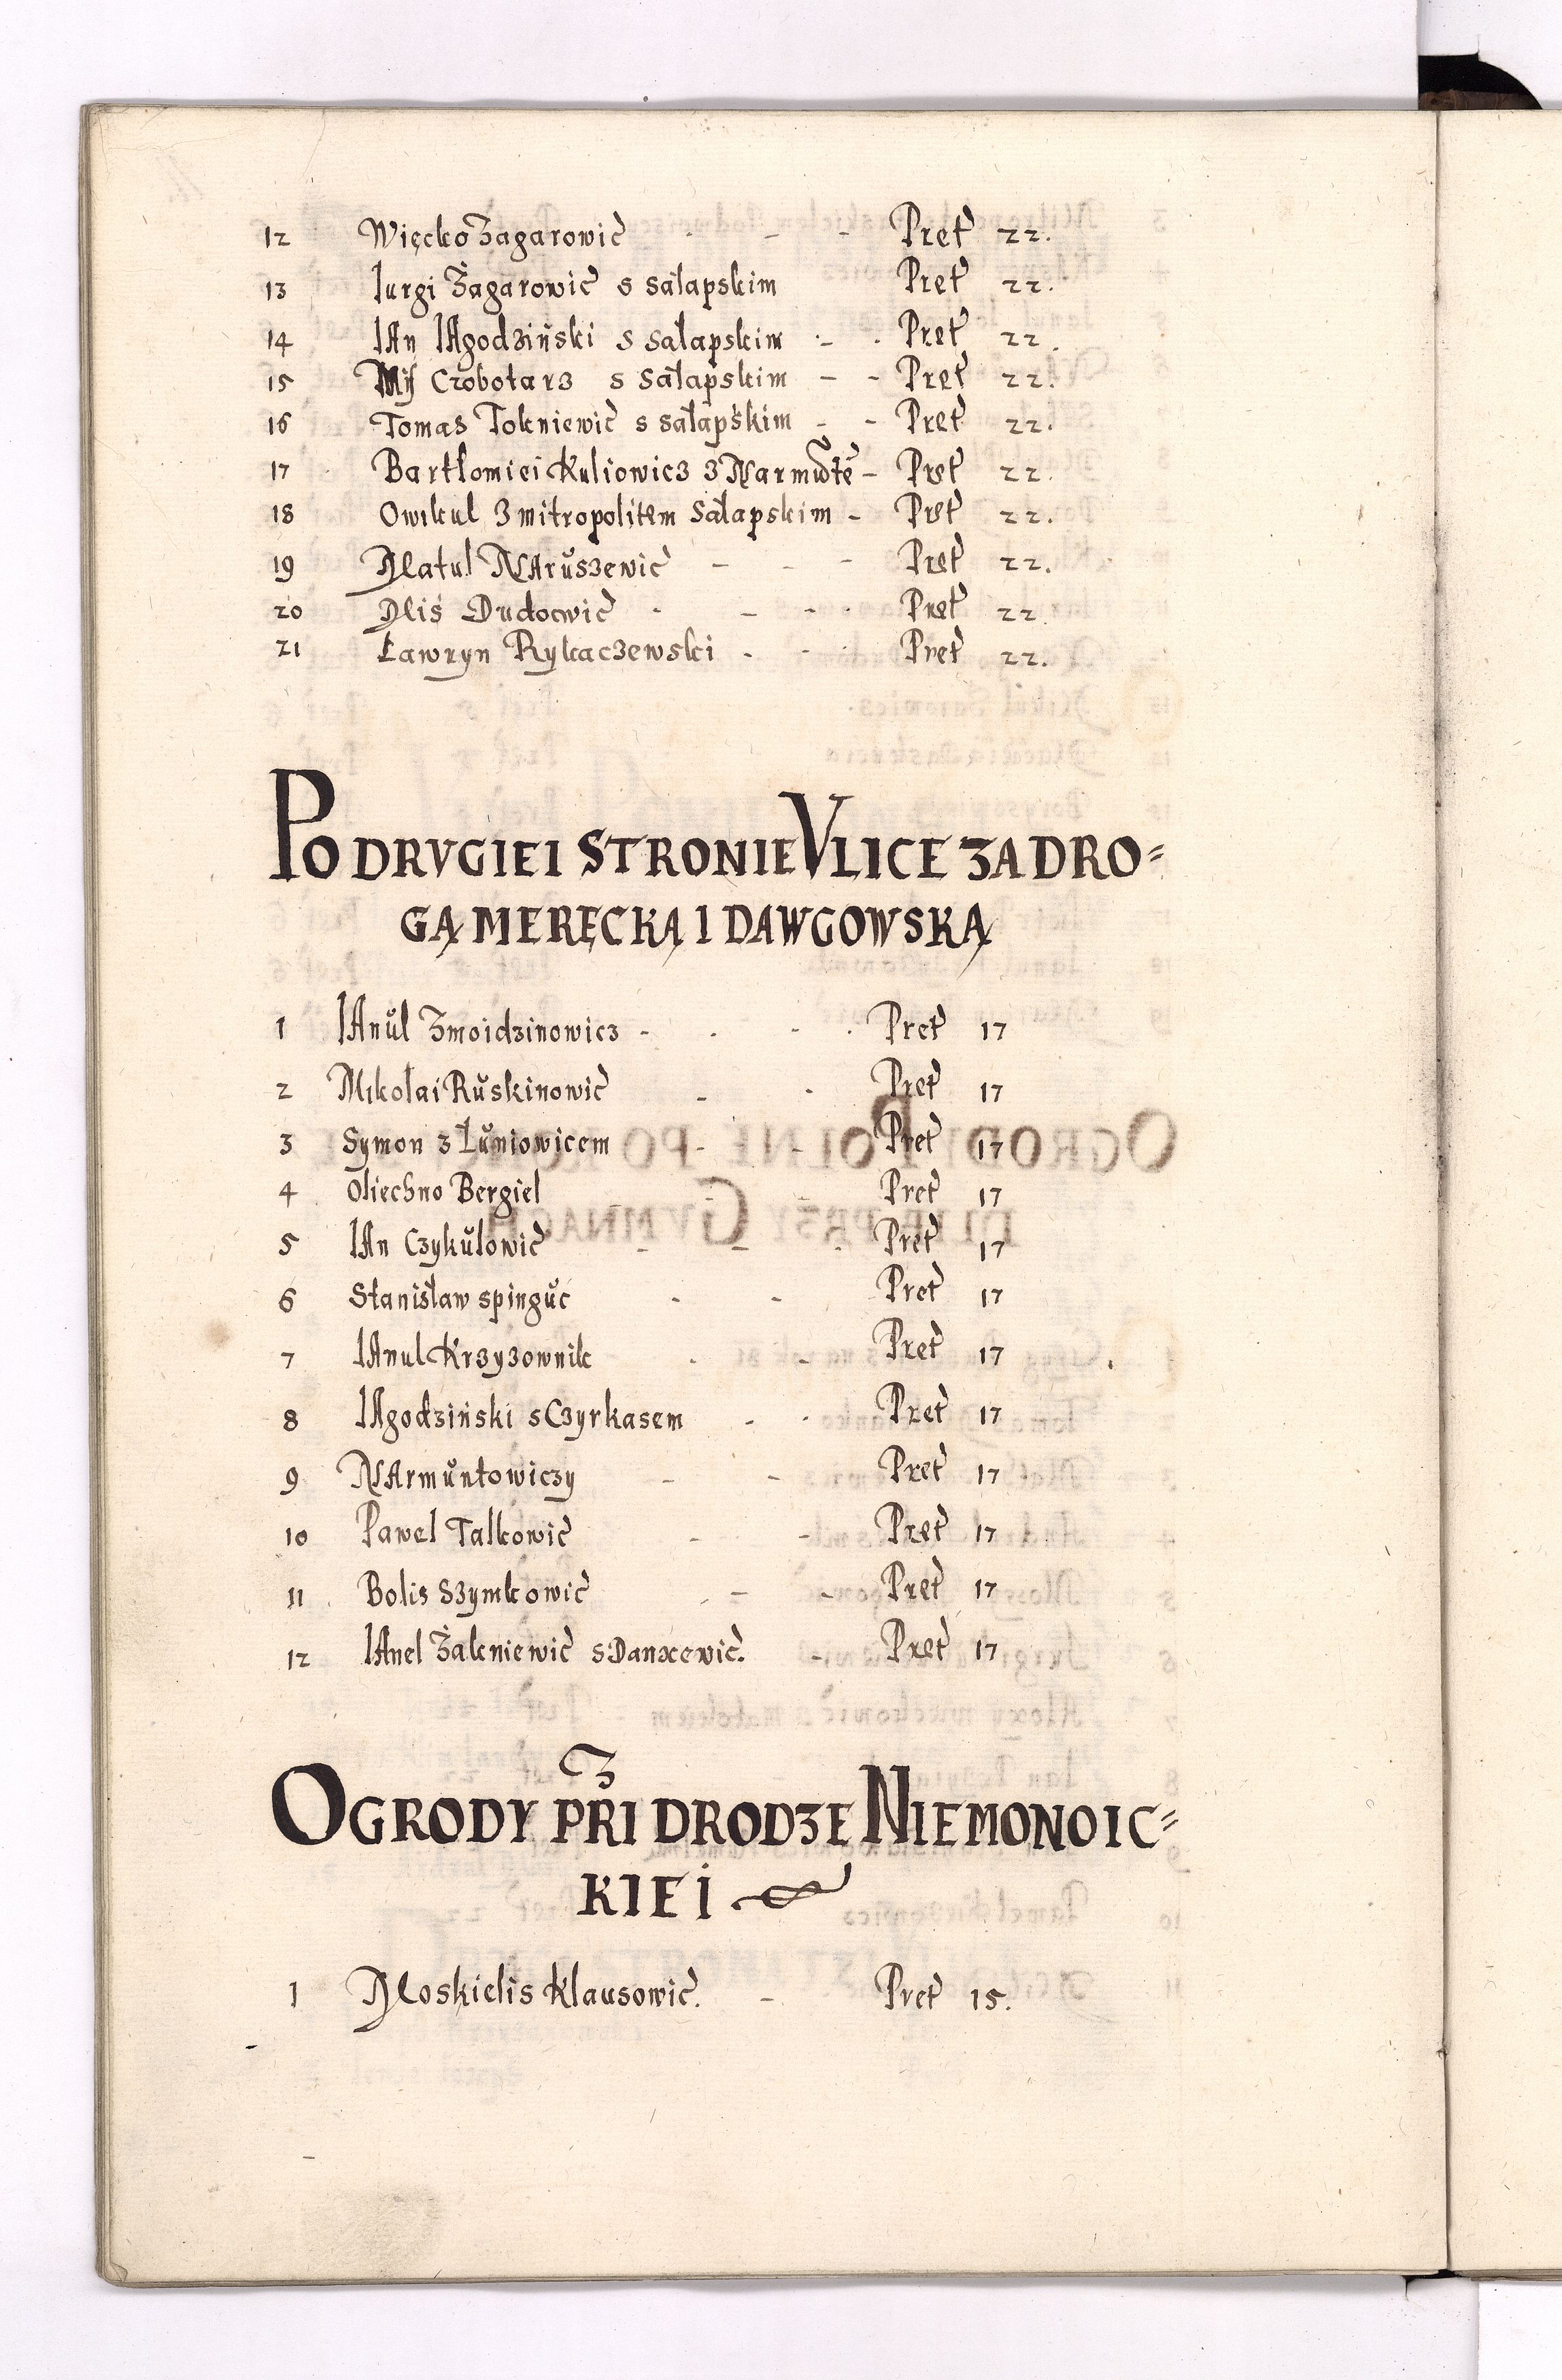 12 Więcko Zagarowic - - Pret 22.
13 Iurgi Zagarowic s Sałapskim Pret 22.
14 IAn IAgodziński s Sałapskim - - Pret 22.
15 Miś Czobotarz s Sałapskim - - Pret 22.
16 Tomas Tokniewic s Sałapskim - - Pret 22.
17 Bartłomiei Kuliowicz z Narmute - Pret 22.
18 Owikul z mitropolitem Sałapskim - Pret 22.
19 Matul NAruszewic - - - Pret 22.
20 Mis Dudocwic - - - Pret 22
21 Ławryn Rykaczewski - - Pret 22.
PO DRVGIEI STRONIE VLICE ZA DRO=
GĄ MERĘCKĄ I DAWGOWSKĄ
1 IAnŭl Zmoidzinowicz - - - Pret 17
2 Mikołai Rŭskinowic - - Pret 17
3 Symon z Łŭniowicem - - Pret 17
4 Oliechno Bergiel - Pret 17
5 IAn Czykŭlowic - - Pret 17
6 Stanisław spingŭc - - Pret 17
7 IAnul Krzyzownik - - Pret 17
8 IAgodziński s Czyrkasem - - Pret 17
9 NArmŭntowiczy - - Pret 17
10 Pawel Talkowic - - Pret 17
11 Bolis Szymkowic - - Pret 17
12 IAnel Zakniewic s Danxewic. - Pret 17
OGRODY PRZI DRODZE NIEMONOIC=
KIEI
1 Moskielis Klausowic. - Pret 15.